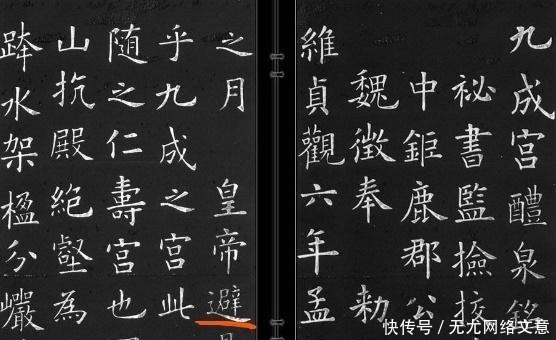 九成宮醴泉銘
祕書監撿挍
中鉅鹿郡公
魏徵奉 勑
維貞觀六年孟
之月 皇帝避
乎九成之宮此
随之仁壽宮也
山抗殿絕壑為
跨水架楹分巖
快传号 / 无尤网络文意